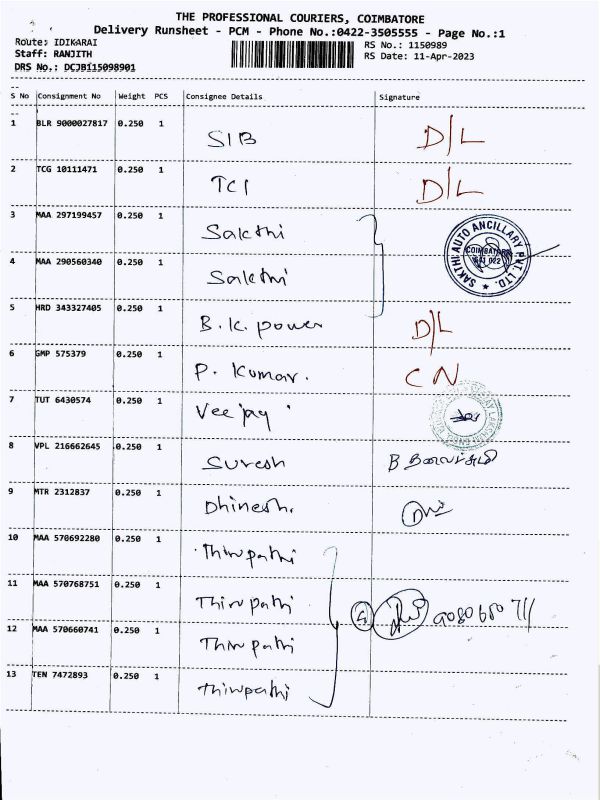 THE PROFESSIONAL COURIERS, COIMBATORE
Delivery Runsheet - PCM - Phone No.:0422-3505555 - Page No.:1
Route: IDIKARAI
RS No.: 1150989
Staff: RANJITH
RS Date: 11-Apr-2023
DRS No.: DCJB115098901
S No Consignment No Weight PCS Consignee Details Signature
1 BLR 9000027817 0.250 1 SIB D/L
2 TCG 10111471 0.250 1 TCI D/L
3 MAA 297199457 0.250 1 Sakthi
SAKTHI AUTO ANCILLARY PVT. LTD. COIMBATORE 641 022
4 MAA 290560340 0.250 1 Sakthi
5 HRD 343327405 0.250 1 B.K. power D/L
6 GMP 575379 0.250 1 P. Kumar. CN
7 TUT 6430574 0.250 1 Veejay
8 VPL 216662645 0.250 1 Suresh B
9 MTR 2312837 0.250 1 Dhinesh.
10 MAA 570692280 0.250 1 Thirupathi
11 MAA 570768751 0.250 1 Thirupathi 4
12 MAA 570660741 0.250 1 Thirupathi
13 TEN 7472893 0.250 1 Thirupathi